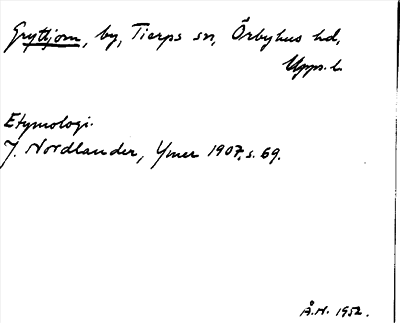 Gryttjom, by, Tierps sn, Örbyhus hd,
Upps. l.
Etymologi.
J. Nordlander, Ymer 1907, s. 69.
Å.H. 1952.